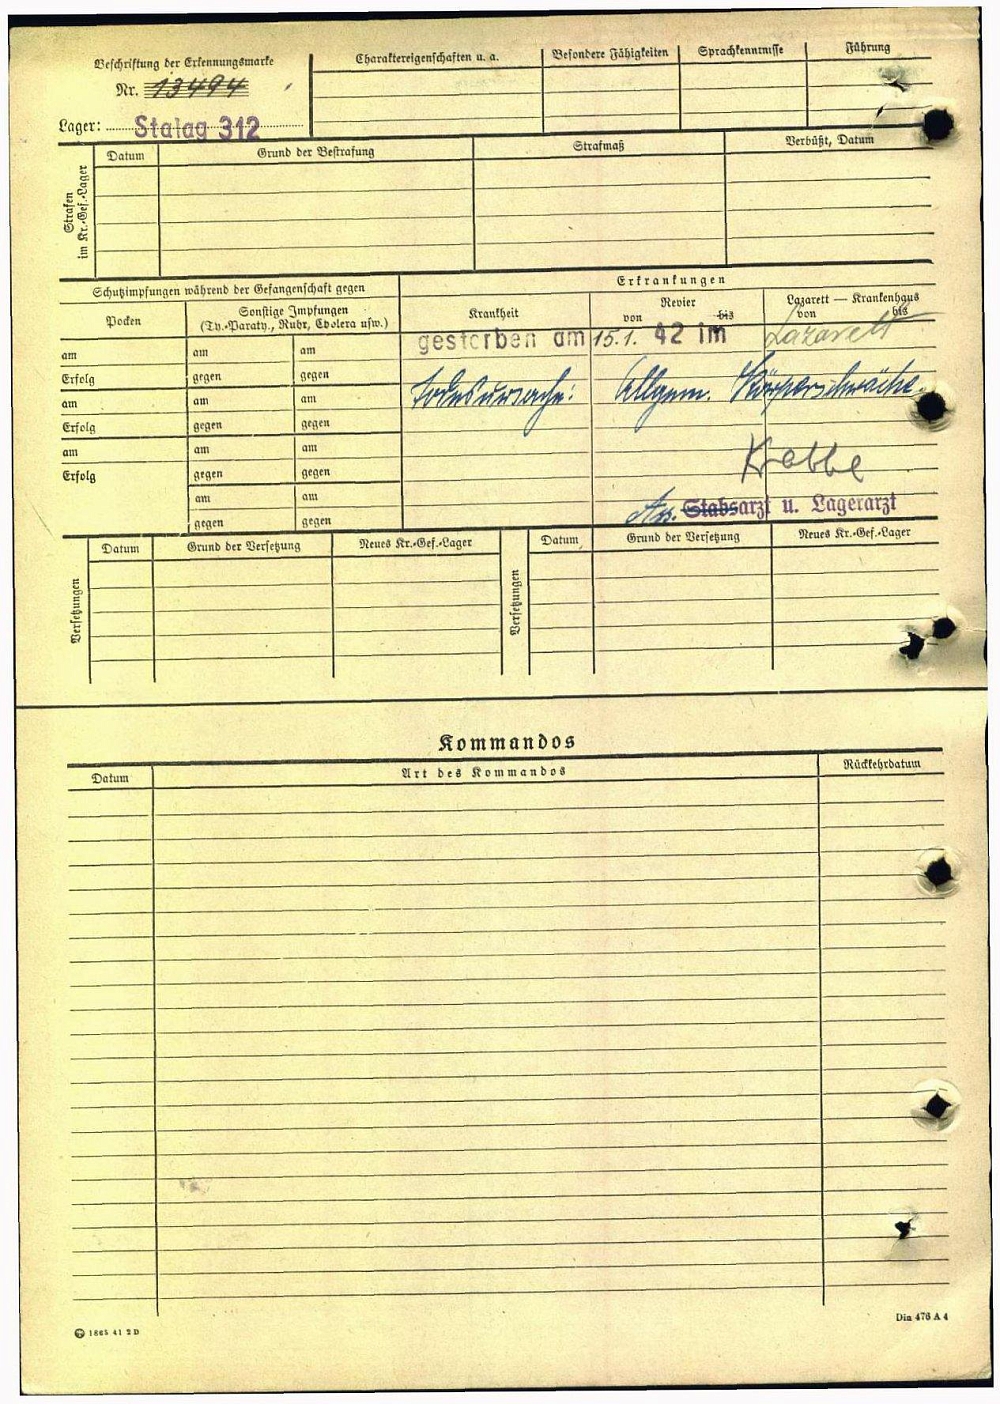 Beschriftung der Erkennungsmarke
Nr. 13494
Lager: Stalag 312
Charaktereigenschaften u. a.
Besondere Fähigkeiten
Sprachkenntnisse
Führung
Strafen
im Kr.-Gef.-Lager
Datum
Grund der Bestrafung
Strafmaß
Verbüßt, Datum
Schutzimpfungen während der Gefangenschaft gegen
Erkrankungen
Pocken
Sonstige Impfungen
(Ty.-Paraty., Ruhr, Cholera usw.)
Krankheit
Revier
von bis
Lazarett — Krankenhaus
von bis
gestorben am 15.1. 42 im Lazarett
am am am
Erfolg gegen gegen
Todesursache: Allgem. Körperschwäche.
am am am
Erfolg gegen gegen
am am am
Erfolg gegen gegen
Krebbe
am am
Ass. Stabsarzt u. Lagerarzt
gegen gegen
Versetzungen
Datum
Grund der Versetzung
Neues Kr.-Gef.-Lager
Versetzungen
Datum
Grund der Versetzung
Neues Kr.-Gef.-Lager
Kommandos
Datum
Art des Kommandos
Rückkehrdatum
1865 41 2 D
Din 476 A 4